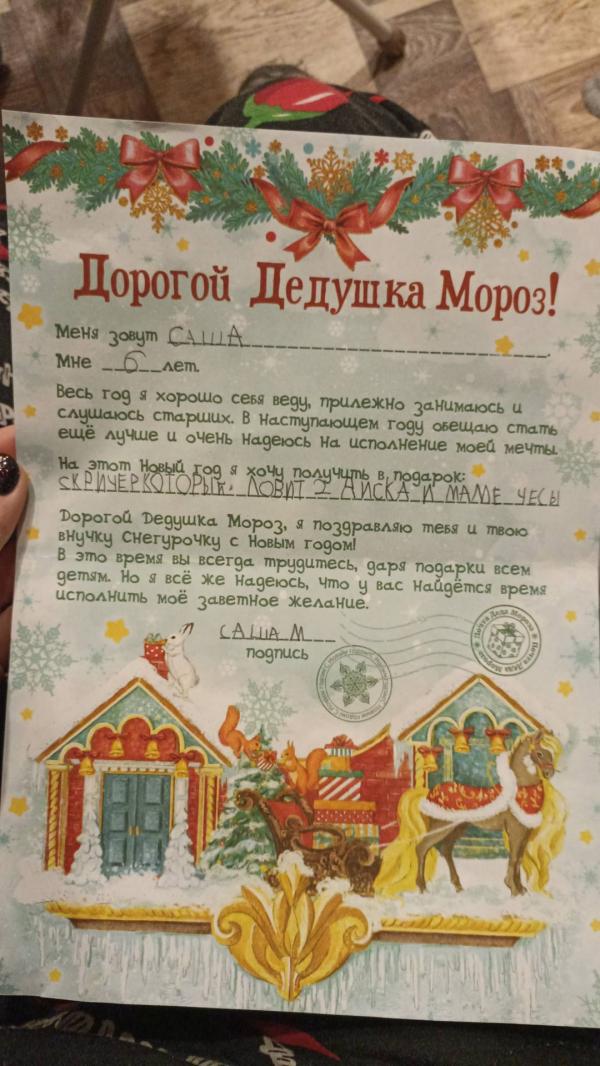 Дорогой Дедушка Мороз!
Меня зовут САША
Мне 6 лет.
Весь год я хорошо себя веду, прилежно занимаюсь и
слушаюсь старших. В наступающем году обещаю стать
ещё лучше и очень надеюсь на исполнение моей мечты.
На этот Новый год я хочу получить в подарок:
СКРИЧЕР КОТОРЫЙ ЛОВИТ 2 ДИСКА И МАМЕ ЧЕСЫ
Дорогой Дедушка Мороз, я поздравляю тебя и твою
внучку Снегурочку с Новым годом!
В это время вы всегда трудитесь, даря подарки всем
детям. Но я всё же надеюсь, что у вас найдётся время
исполнить моё заветное желание.
САША М
подпись
Почта Деда Мороза